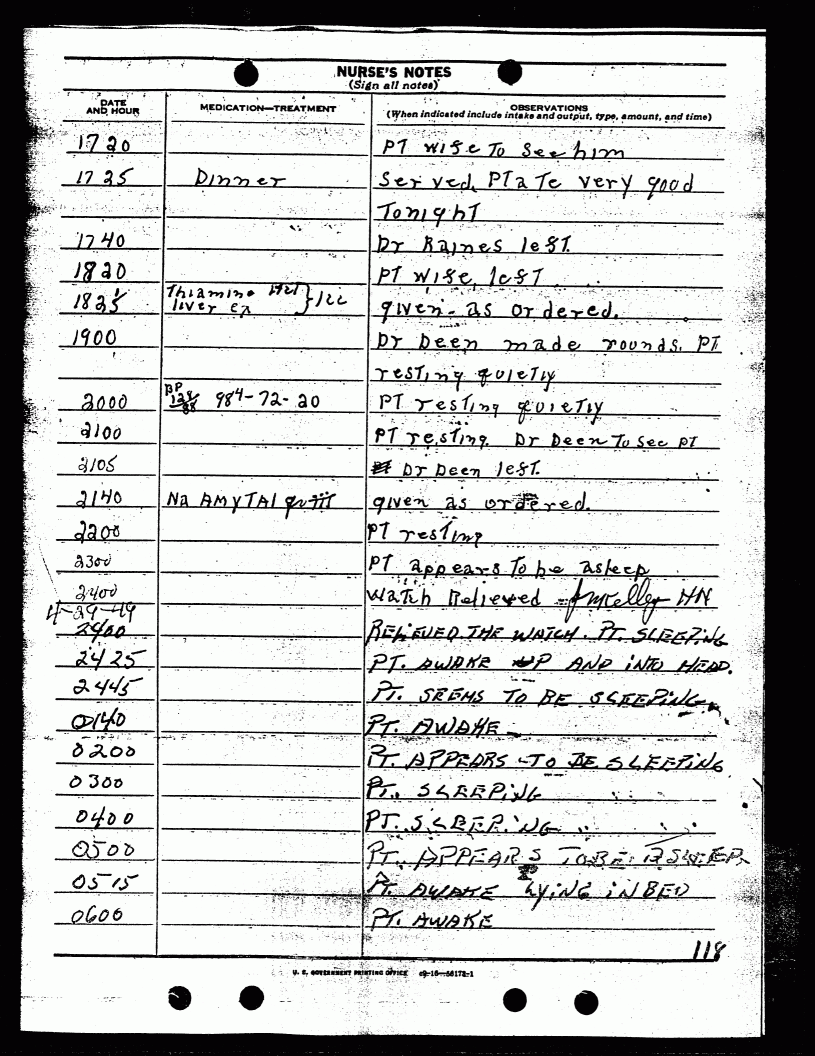 NURSE'S NOTES
(Sign all notes)
DATE AND HOUR MEDICATION—TREATMENT OBSERVATIONS
(When indicated include intake and output, type, amount, and time)
1720 PT wife To See him
1725 Dinner Served, PT aTe very good
TonighT
1740 Dr Raines left.
1820 PT wife left
1825 Thiamine liver ex } 1cc given as ordered.
1900 Dr Deen made rounds. PT
resTing quieTly
2000 BP 128/88 984-72-20 PT resTing quieTly
2100 PT resTing. Dr Deen To See PT
2105 Dr Deen lefT.
2140 Na AmyTAl given as ordered.
2200 PT resTing
2300 PT appears To be asleep
2400 WaTch Relieved HN
4-29-49
2400 RELIEVED THE WATCH. PT. SLEEPING
2425 PT. AWAKE UP AND INTO HEAD.
2445 PT. SEEMS TO BE SLEEPING
0140 PT. AWAKE
0200 PT. APPEARS TO BE SLEEPING
0300 PT. SLEEPING
0400 PT. SLEEPING
0500 PT. APPEARS TO BE ASLEEP.
0515 PT. AWAKE LyING IN BED
0600 PT. AWAKE
118
U. S. GOVERNMENT PRINTING OFFICE